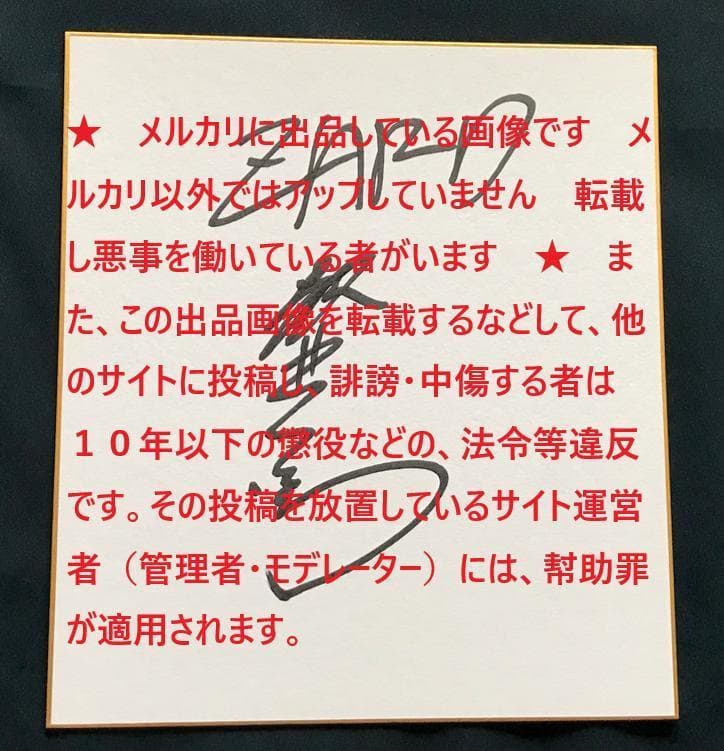 ★　メルカリに出品している画像です　メ
ルカリ以外ではアップしていません　転載
し悪事を働いている者がいます　★　ま
た、この出品画像を転載するなどして、他
のサイトに投稿し、誹謗・中傷する者は
１０年以下の懲役などの、法令等違反
です。その投稿を放置しているサイト運営
者（管理者・モデレーター）には、幇助罪
が適用されます。
ZARD